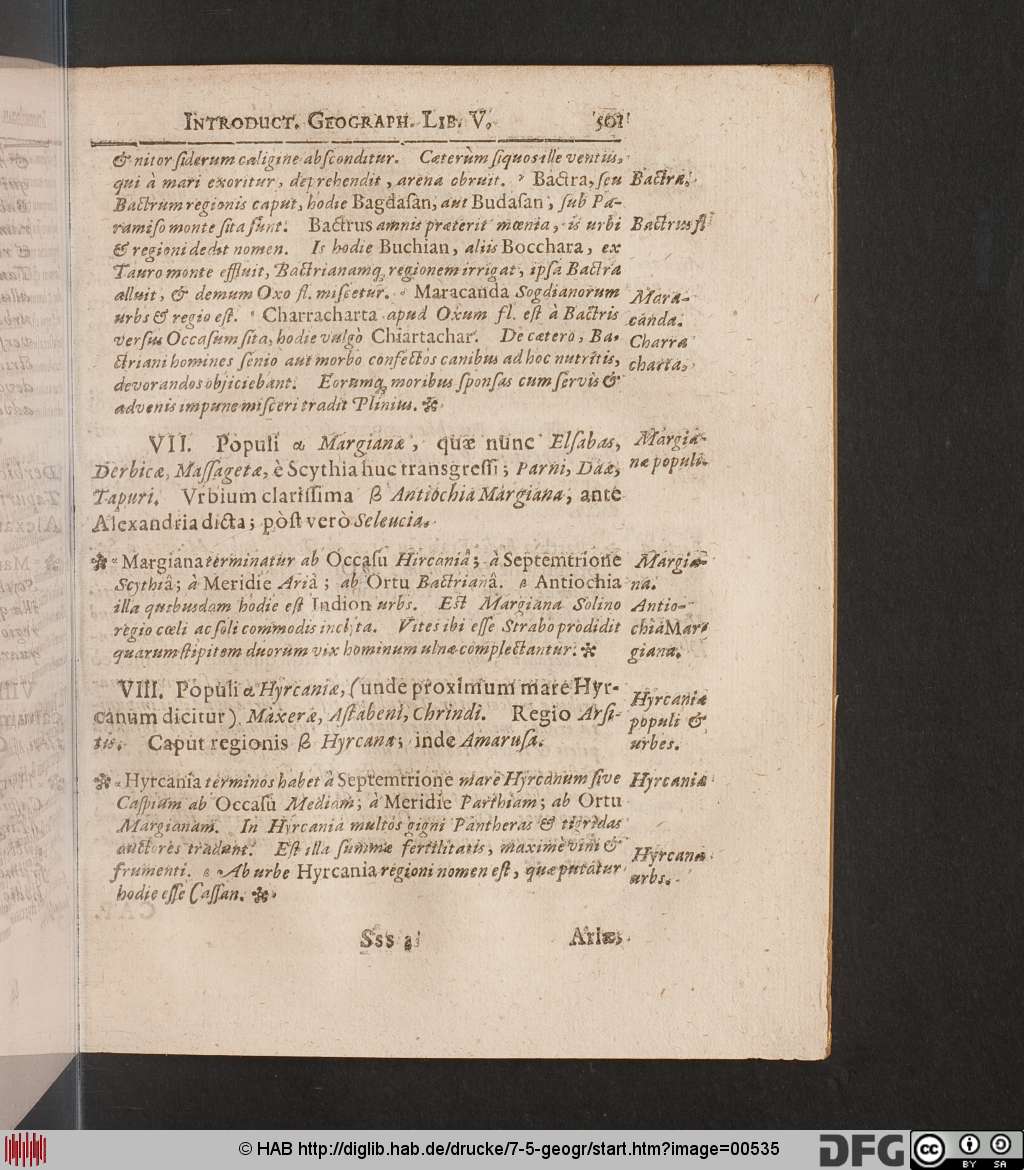 INTRODUCT. GEOGRAPH. LIB. V. 501
& nitor siderum caligine absconditur. Cæterùm siquos ille ventus,
qui à mari exoritur, deprehendit, arena obruit. Bactra, seu
Bactrum regionis caput, hodie Bagdasan, aut Budasan, sub Pa-
ramiso monte sita sunt. Bactrus amnis præterit mœnia, is urbi
& regioni dedit nomen. Is hodie Buchian, aliis Bocchara, ex
Tauro monte effluit, Bactrianamq; regionem irrigat, ipsa Bactra
alluit, & demum Oxo fl. miscetur. Maracanda Sogdianorum
urbs & regio est. Charracharta apud Oxum fl. est à Bactris
versus Occasum sita, hodie vulgò Chiartachar. De cætero, Ba-
ctriani homines senio aut morbo confectos canibus ad hoc nutritis,
devorandos objiciebant. Eorumq; moribus sponsas cum servis &
advenis impune misceri tradit Plinius.
Bactra.
Bactrus fl
Mara-
canda.
Charra
charta.
VII. Populi α Margianæ, quæ nunc Elsabas,
Derbicæ, Massagetæ, è Scythia huc transgressi; Parni, Daæ,
Tapuri. Vrbium clarissima β Antiochia Margiana, ante
Alexandria dicta; pòst verò Seleucia.
Margia-
næ populi.
α Margiana terminatur ab Occasu Hircaniâ; à Septemtrione
Scythiâ; à Meridie Ariâ; ab Ortu Bactrianâ. β Antiochia
illa quibusdam hodie est Indion urbs. Est Margiana Solino
regio cœli ac soli commodis inclyta. Vites ibi esse Strabo prodidit
quarum stipitem duorum vix hominum ulnæ complectantur.
Margia-
na.
Antio-
chia Mar-
giana.
VIII. Populi α Hyrcaniæ, (unde proximum mare Hyr-
canum dicitur) Maxeræ, Astabeni, Chrindi. Regio Arsi-
tis. Caput regionis β Hyrcana; inde Amarusa.
Hyrcaniæ
populi &
urbes.
α Hyrcania terminos habet à Septemtrione mare Hyrcanum sive
Caspium ab Occasu Mediam; à Meridie Parthiam; ab Ortu
Margianam. In Hyrcania multos gigni Pantheras & tigridas
auctores tradunt. Est illa summæ fertilitatis, maximè vini &
frumenti. β Ab urbe Hyrcania regioni nomen est, quæ putatur
hodie esse Cassan.
Hyrcaniæ
Hyrcana
urbs.
Sss 3 Ariæ,
© HAB http://diglib.hab.de/drucke/7-5-geogr/start.htm?image=00535
DFG
cc BY SA